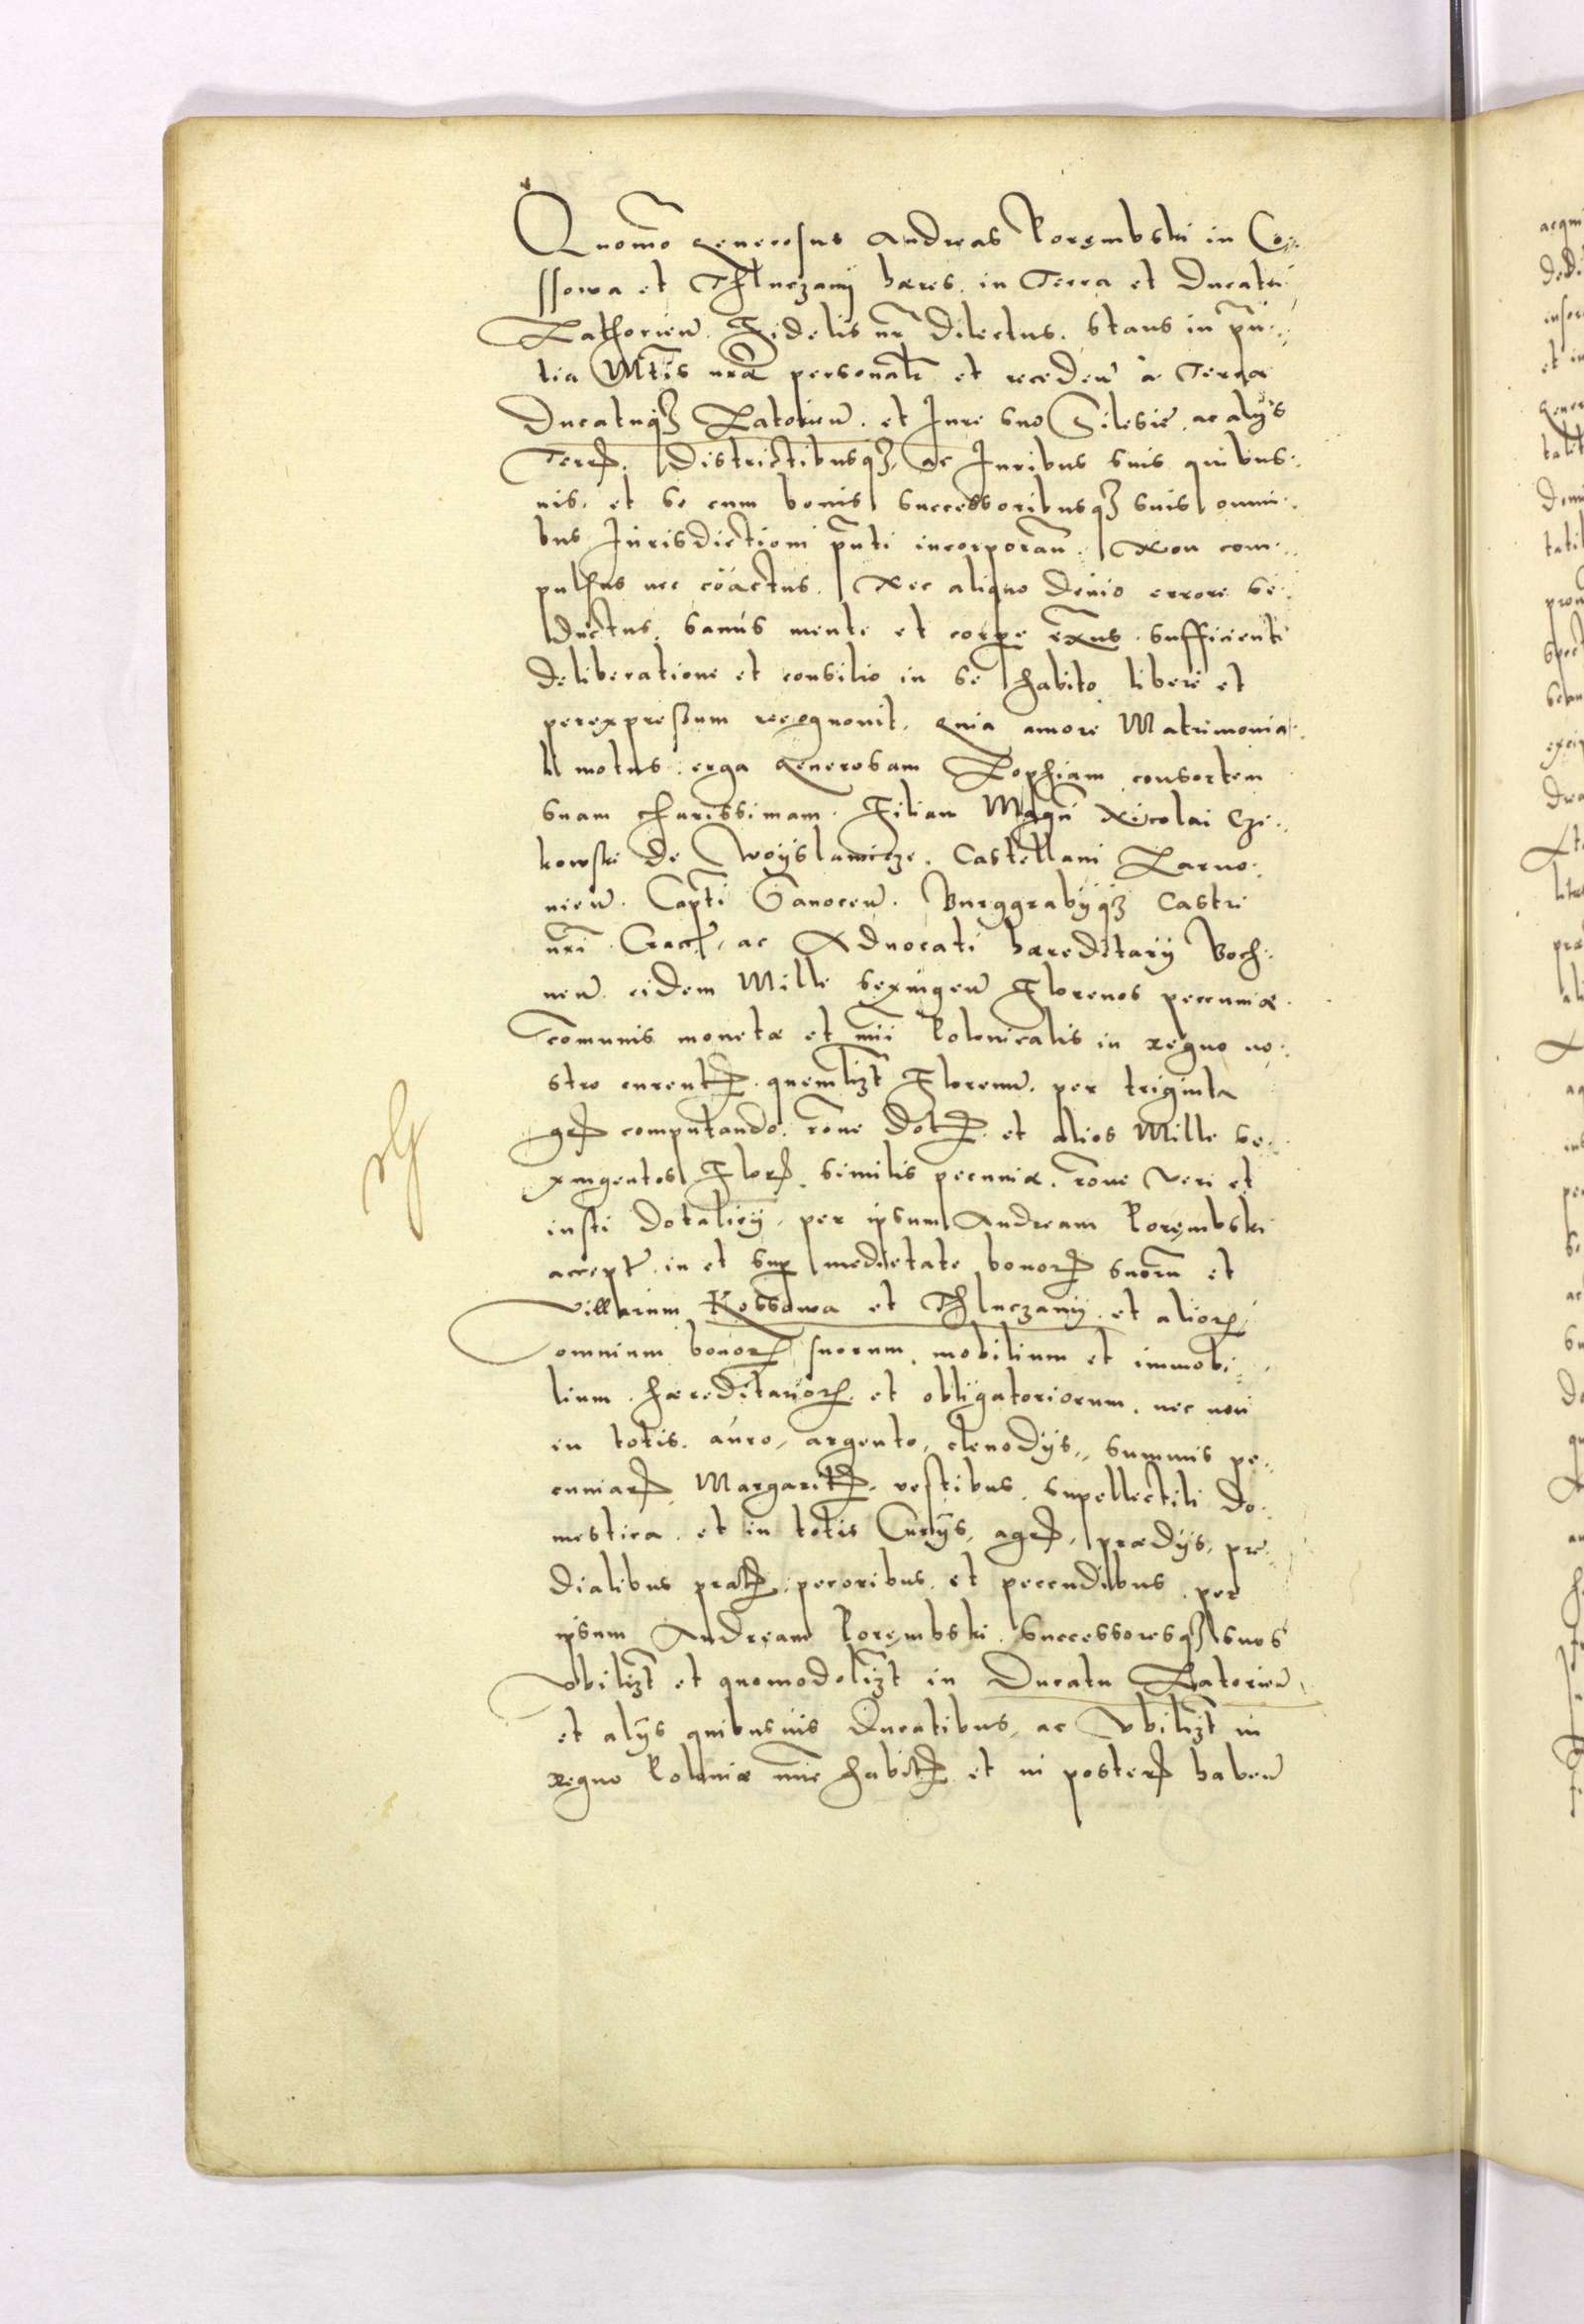 Quomo generosus Andreas Porembski in Co¬
ssowa et Thluczanij haeres in Terra et Ducatu
Zathorien. Fidelis nr Dilectus. Stans in pn¬
tia Mtis nrae personalr et receden a Terra
Ducatuq3 Zatorien. et Jure suo Silesie. ac alijs
Terr. Districtibusq3 ac Juribus suis quibus¬
uis. et se cum bonis successoribusq3 suis omni¬
bus Jurisdictioni pnti incorporan. Non com¬
pulsus nec coactus. Nec aliquo deuio errore se¬
ductus. Sanus mente et corpe exns. sufficienti
deliberatione et consilio in se habito libere et
perexpressum recognouit. Quia amore Matrimonia¬
li motus. erga generosam Zophiam consortem
suam charissimam. Filiam Magci Nicolai Czi¬
kowski de Woijslawicze. Castellani Zarno¬
uien. Capti Sanocen. Burggrabijq3 Castri
nri Crac. ac Aduocati haereditarij Boch¬
nen. eidem Mille sexingen Florenos pecuniae
comunis monetae et nui Polonicalis in regno no¬
stro curent. quemlizt Florenu. per triginta
gr computando. rone dot. et alios Mille se¬
xingentos Flor. similis pecuniae. rone veri et
iusti dotalicij. per ipsum Andream Porembski
accept. in et sup medietate bonor suoru et
villarum Kossowa et Thluczanij. et alior
omnium bonor suorum mobilium et immobi¬
lium. haereditarior. et obligatoriorum. nec non
in totis. auro, argento, clenodijs, summis pe¬
cuniar, Margarit. vestibus. supellectili do¬
mestica. et in totis Curijs, agr, praedijs, pre¬
dialibus prat. pecoribus. et pecudibus. per
ipsum Andream Porembski. Successoresq3 suos
vbilizt et quomodolizt in Ducatu Zatorien
et alijs quibusuis Ducatibus, ac vbilizt in
regno Poloniae nunc habit. et in poster haben